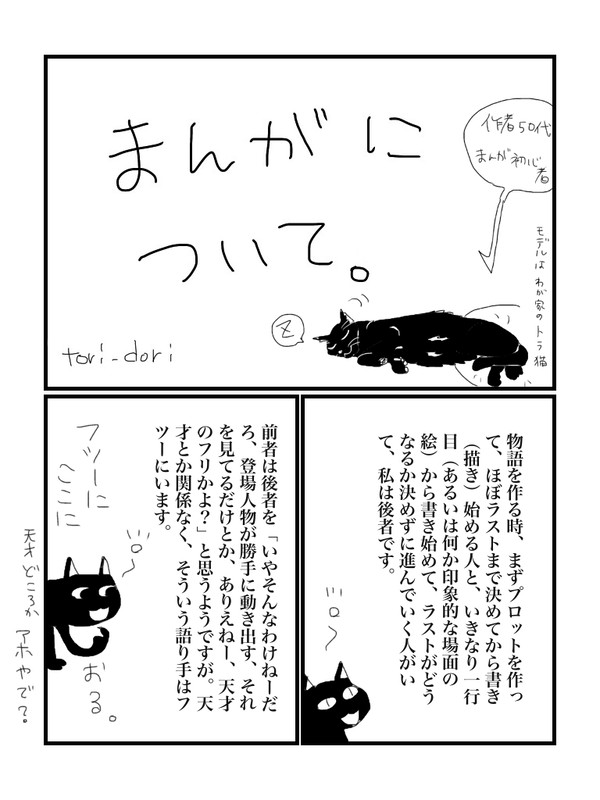 まんがに
ついて。
作者50代
まんが初心
者
モデルは わが家のトラ猫
Z
tori-dori
物語を作る時、まずプロットを作っ
て、ほぼラストまで決めてから書き
（描き）始める人と、いきなり一行
目（あるいは何か印象的な場面の
絵）から書き始めて、ラストがどう
なるか決めずに進んでいく人がい
て、私は後者です。
前者は後者を「いやそんなわけねーだ
ろ、登場人物が勝手に動き出す、それ
を見てるだけとか、ありえねー、天才
のフリかよ？」と思うようですが。天
才とか関係なく、そういう語り手はフ
ツーにいます。
フツーに
ここに
おる。
天才どころか
アホやで？